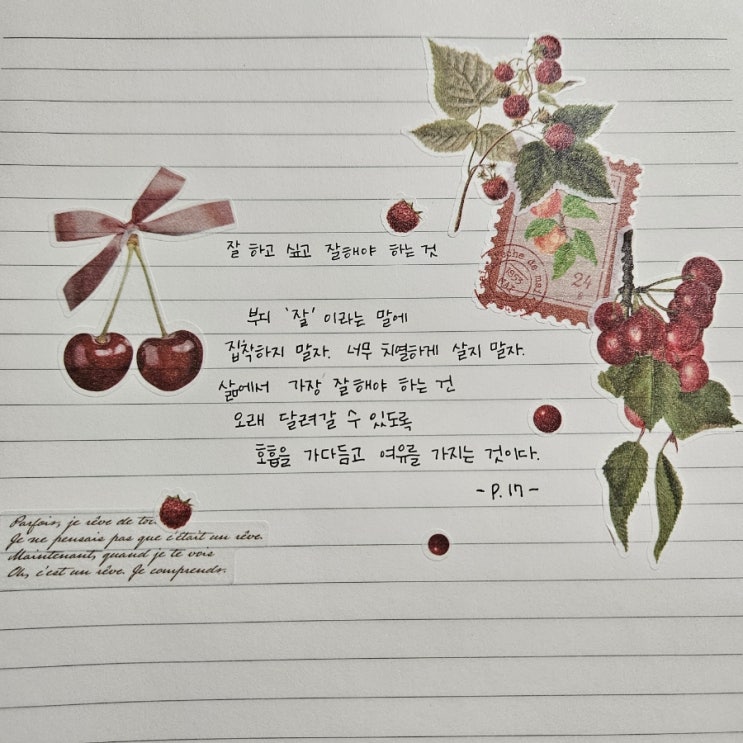 잘 하고 싶고 잘해야 하는 것
부디 '잘' 이라는 말에
집착하지 말자. 너무 치열하게 살지 말자.
삶에서 가장 잘해야 하는 건
오래 달려갈 수 있도록
호흡을 가다듬고 여유를 가지는 것이다.
- P. 17 -
che de mai
1953
24
Parfois, je rêve de toi.
Je ne pensais pas que c'était un rêve.
Maintenant, quand je te vois
Oh, c'est un rêve. Je comprends.